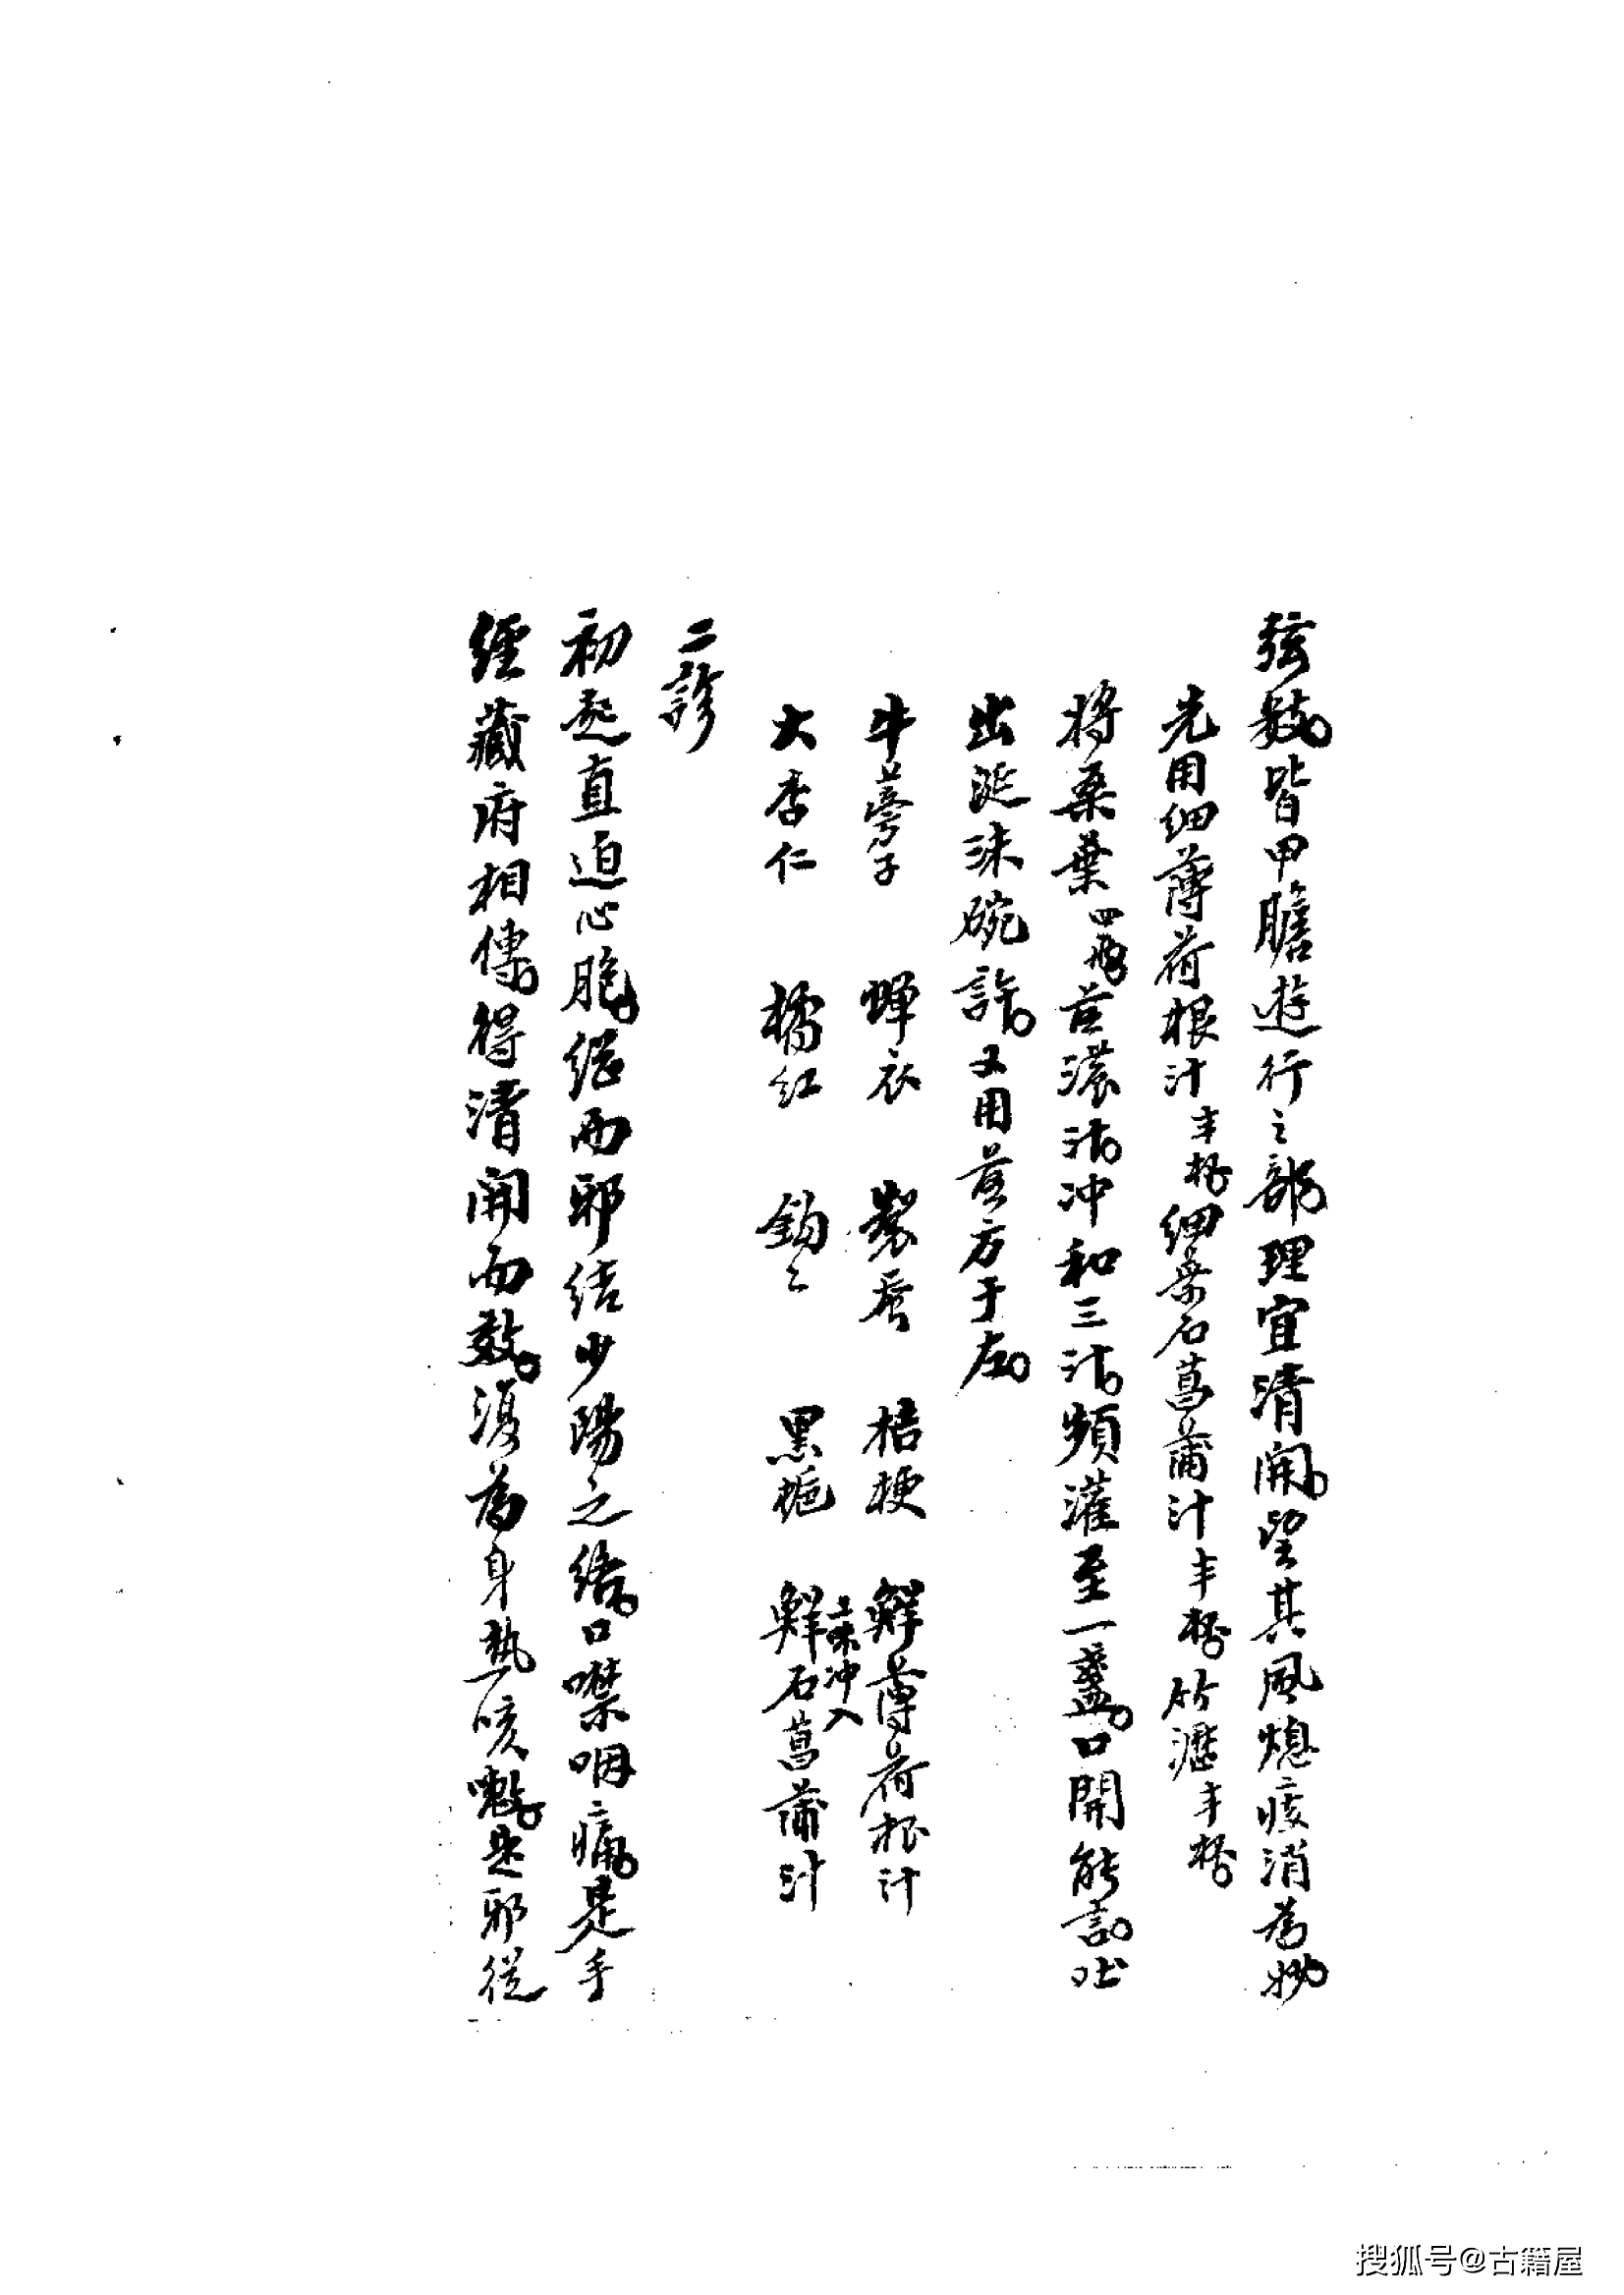 弦數皆甲膽遊行之部理宜清開望其風熄痰消為妙
先用細薄荷根汁半杯細葉石菖蒲汁半杯竹瀝半杯
將桑葉四兩煎濃湯冲和三汁頻灌至一盞口開能言吐
出涎沫碗許又用煎方于左
牛蒡子 蟬衣 製蚕 桔梗 鮮薄荷根汁
二味冲入
大杏仁 橘紅 鈎鈎 黑梔 鮮石菖蒲汁
二診
初起直迫心胞繼而邪結少陽之絡口噤咽痛是手
經藏府相傳得清開而效復為身熱咳嗽是邪從
搜狐号@古籍屋